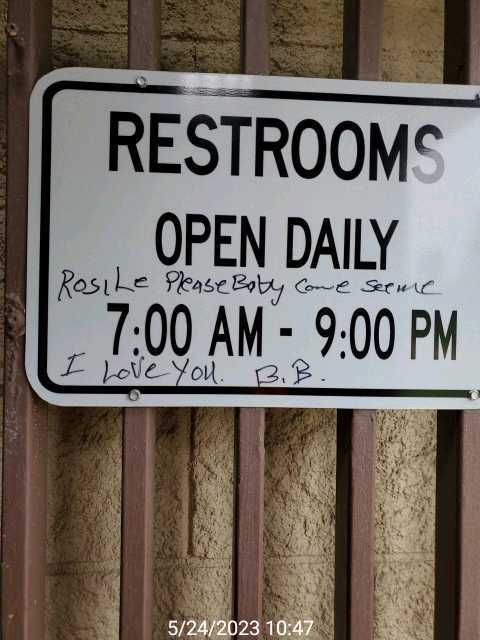 RESTROOMS
OPEN DAILY
Rosile Please Baby come see me
7:00 AM - 9:00 PM
I Love You. B.B.
5/24/2023 10:47